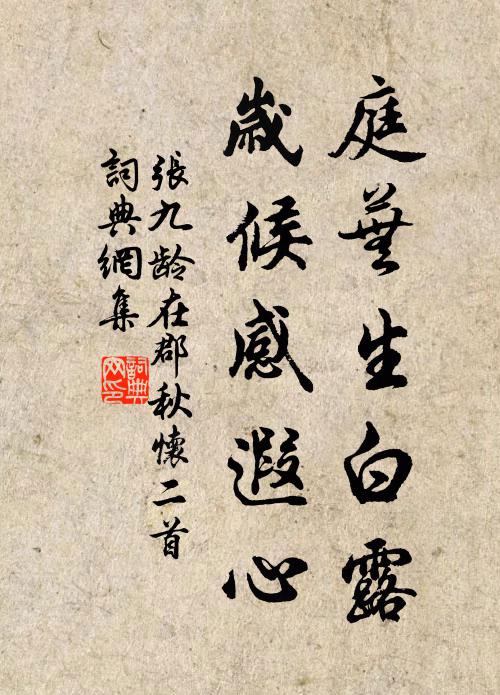 庭蕪生白露
歲候感遐心
張九齡在郡秋懷二首
詞典網集
詞典網印